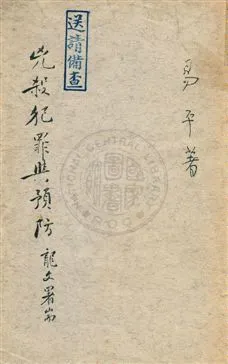 易平著
送請備查
兇殺犯罪與預防
龍文署耑
NATIONAL CENTRAL LIBRARY